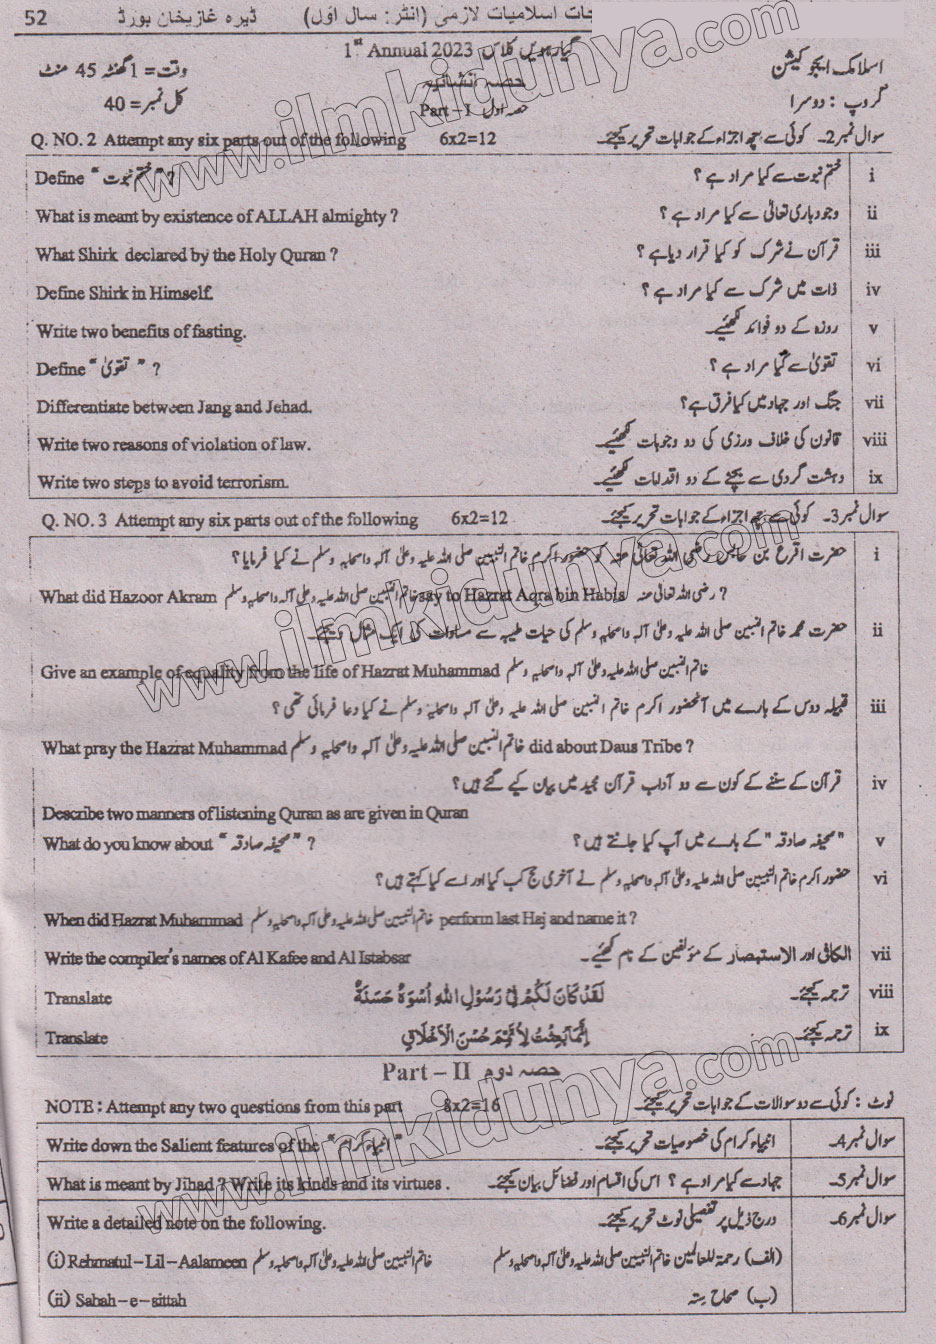 52 ڈیرہ غازیخان بورڈ جات اسلامیات لازمی (انٹر: سال اوّل)
1st Annual 2023 گیارہویں کلاس
اسلامک ایجوکیشن
وقت = 1 گھنٹہ 45 منٹ
حصہ انشائیہ
گروپ : دوسرا
کل نمبر = 40
Part-I حصہ اول
Q. NO. 2 Attempt any six parts out of the following 6x2=12 سوال نمبر2۔ کوئی سے چھ اجزاء کے جوابات تحریر کیجئے۔
Define “ختم نبوت”? ختم نبوت سے کیا مراد ہے ؟ i
What is meant by existence of ALLAH almighty ? وجود باری تعالٰی سے کیا مراد ہے ؟ ii
What Shirk declared by the Holy Quran ? قرآن نے شرک کو کیا قرار دیا ہے ؟ iii
Define Shirk in Himself. ذات میں شرک سے کیا مراد ہے ؟ iv
Write two benefits of fasting. روزہ کے دو فوائد لکھئیے۔ v
Define “ تقویٰ ” ? تقویٰ سے کیا مراد ہے ؟ vi
Differentiate between Jang and Jehad. جنگ اور جہاد میں کیا فرق ہے؟ vii
Write two reasons of violation of law. قانون کی خلاف ورزی کی دو وجوہات لکھئیے۔ viii
Write two steps to avoid terrorism. دہشت گردی سے بچنے کے دو اقدامات لکھئیے۔ ix
Q. NO. 3 Attempt any six parts out of the following 6x2=12 سوال نمبر3۔ کوئی سے چھ اجزاء کے جوابات تحریر کیجئے۔
حضرت اقرع بن حابس رضی اللہ تعالٰی عنہ کو حضور اکرم خاتم النبیین صلی اللہ علیہ وعلٰی آلہ واصحابہ وسلم نے کیا فرمایا؟ i
What did Hazoor Akram خاتم النبیین صلی اللہ علیہ وعلٰی آلہ واصحابہ وسلم say to Hazrat Aqra bin Habis رضی اللہ تعالٰی عنہ ?
حضرت محمد خاتم النبیین صلی اللہ علیہ وعلٰی آلہ واصحابہ وسلم کی حیات طیبہ سے مساوات کی ایک مثال دیجئے۔ ii
Give an example of equality from the life of Hazrat Muhammad خاتم النبیین صلی اللہ علیہ وعلٰی آلہ واصحابہ وسلم
قبیلہ دوس کے بارے میں آنحضور اکرم خاتم النبیین صلی اللہ علیہ وعلٰی آلہ واصحابہ وسلم نے کیا دعا فرمائی تھی ؟ iii
What pray the Hazrat Muhammad خاتم النبیین صلی اللہ علیہ وعلٰی آلہ واصحابہ وسلم did about Daus Tribe ?
قرآن کے سننے کے کون سے دو آداب قرآن مجید میں بیان کیے گئے ہیں؟ iv
Describe two manners of listening Quran as are given in Quran
What do you know about “ صحیفہ صادقہ ” ? "صحیفہ صادقہ" کے بارے میں آپ کیا جانتے ہیں؟ v
حضور اکرم خاتم النبیین صلی اللہ علیہ وعلٰی آلہ واصحابہ وسلم نے آخری حج کب کیا اور اسے کیا کہتے ہیں؟ vi
When did Hazrat Muhammad خاتم النبیین صلی اللہ علیہ وعلٰی آلہ واصحابہ وسلم perform last Haj and name it ?
Write the compiler's names of Al Kafee and Al Istabsar الکافی اور الاستبصار کے مؤلفین کے نام لکھئیے۔ vii
Translate لَقَدْ كَانَ لَكُمْ فِیْ رَسُوْلِ اللّٰهِ اُسْوَةٌ حَسَنَةٌ ترجمہ کیجئے۔ viii
Translate اِنَّمَا بُعِثْتُ لِاُتَمِّمَ حُسْنَ الْاَخْلَاقِ ترجمہ کیجئے۔ ix
Part – II حصہ دوم
NOTE : Attempt any two questions from this part 8x2=16 نوٹ : کوئی سے دو سوالات کے جوابات تحریر کیجئے۔
Write down the Salient features of the “انبیاء کرام” انبیاء کرام کی خصوصیات تحریر کیجئے۔ سوال نمبر4۔
What is meant by Jihad ? Write its kinds and its virtues . جہاد سے کیا مراد ہے ؟ اس کی اقسام اور فضائل بیان کیجئے۔ سوال نمبر5۔
Write a detailed note on the following. درج ذیل پر تفصیلی نوٹ تحریر کیجئے۔ سوال نمبر6۔
(i) Rehmatul-Lil-Aalameen خاتم النبیین صلی اللہ علیہ وعلٰی آلہ واصحابہ وسلم (الف) رحمۃ للعالمین خاتم النبیین صلی اللہ علیہ وعلٰی آلہ واصحابہ وسلم
(ii) Sahah-e-sittah (ب) صحاح ستہ
www.ilmkidunya.com
www.ilmkidunya.com
www.ilmkidunya.com